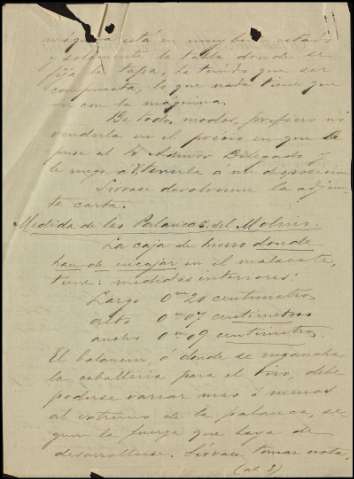 máquina está en muy buen estado
y solamente la tabla donde se
fija la tapa, ha tenido que ser
compuesta, lo que nada tiene que
ver con la máquina.
De todos modos, prefiero no
venderla en el precio en que la
puse al Sr Admor Delegado
le ruego a V. tenerla a mi disposición
Sírvase devolverme la adjun-
ta carta.
Medida de las Palancas del Molino.
La caja de hierro donde
han de encajar en el malacate,
tiene: medidas interiores:
Largo 0m 20 centímetros
alto 0m 07 centímetros
ancho 0m 09 centímetros.
El balancín, ó donde se engancha
la caballería para el tiro, debe
poderse variar más ó menos
al extremo de la palanca, se-
gun la fuerza que haya de
desarrollarse. Sírvase tomar nota.
(al 3)